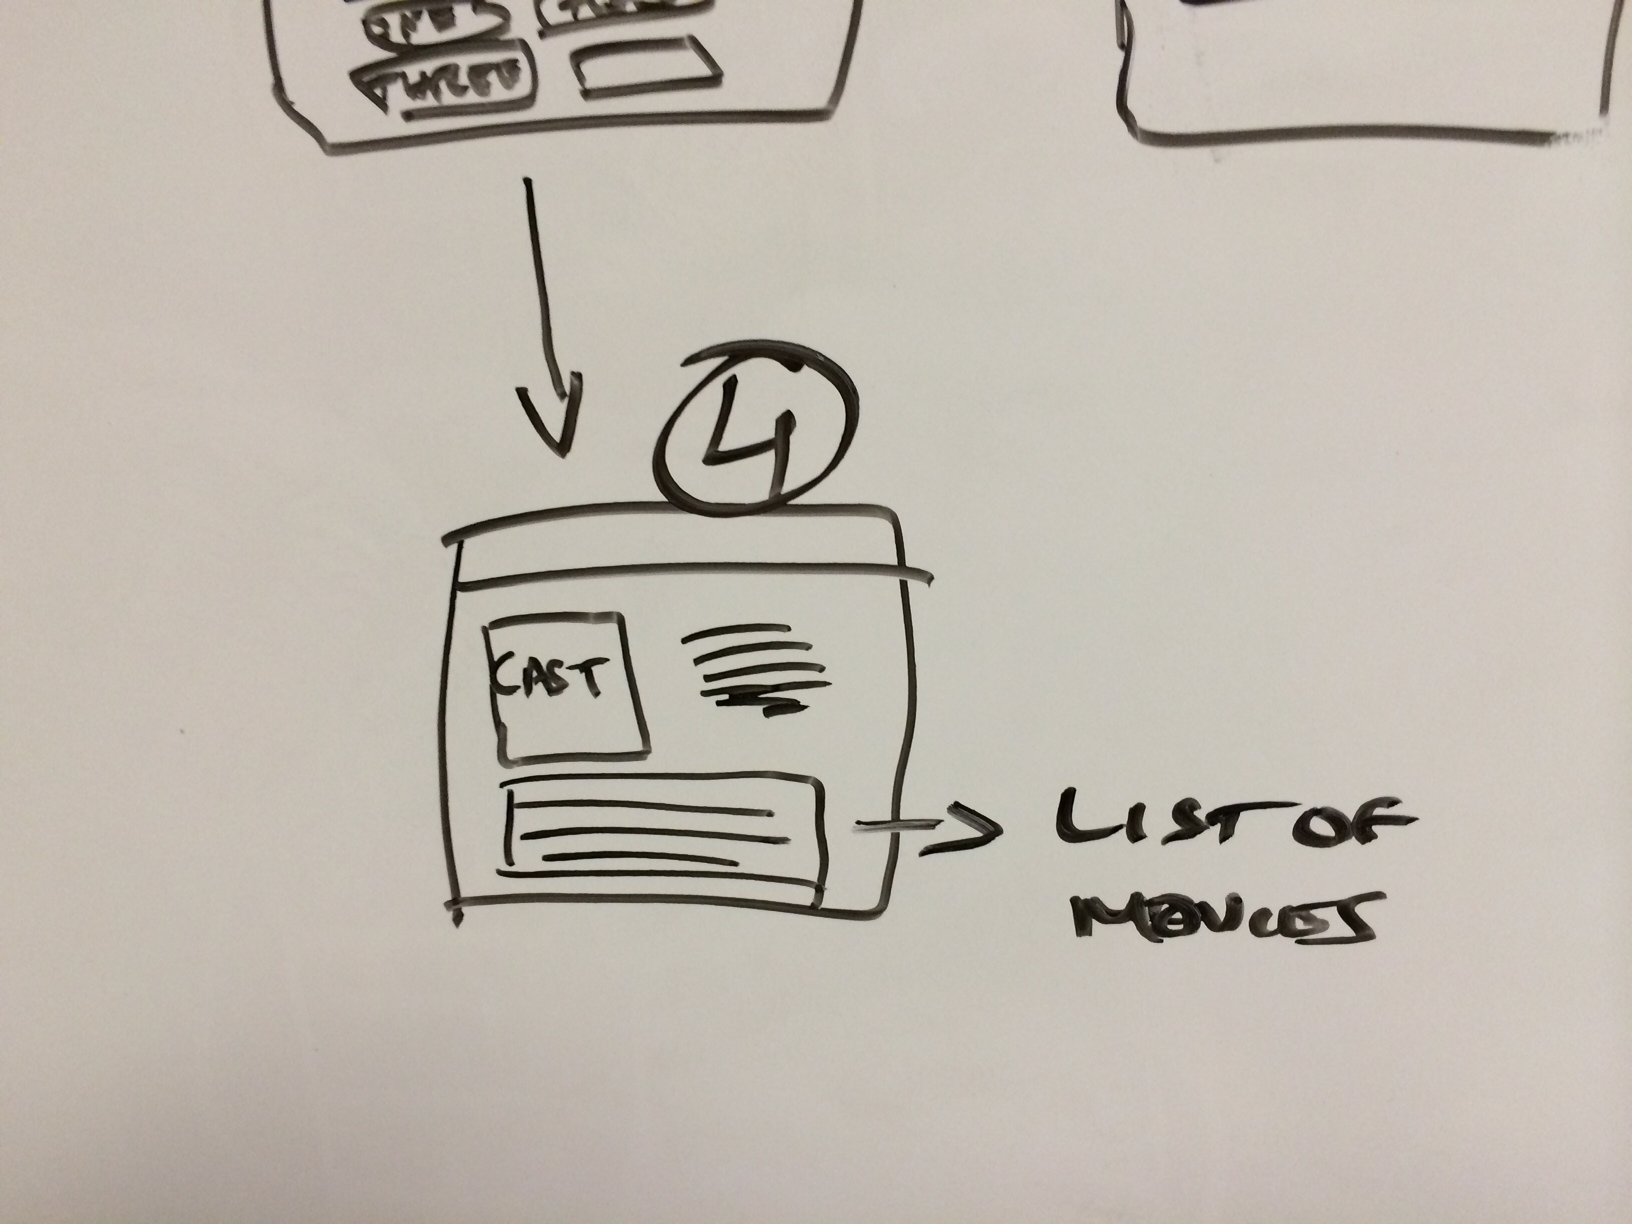 ONE
THREE
4
CAST
LIST OF
MOVIES